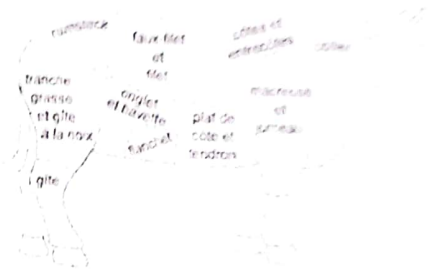 rumsteck
faux filet
et
filet
côtes et
entrecôtes
collier
tranche
grasse
et gite
à la noix
onglet
et bavette
flanchet
plat de
côte et
tendron
macreuse
et
jumeau
gite